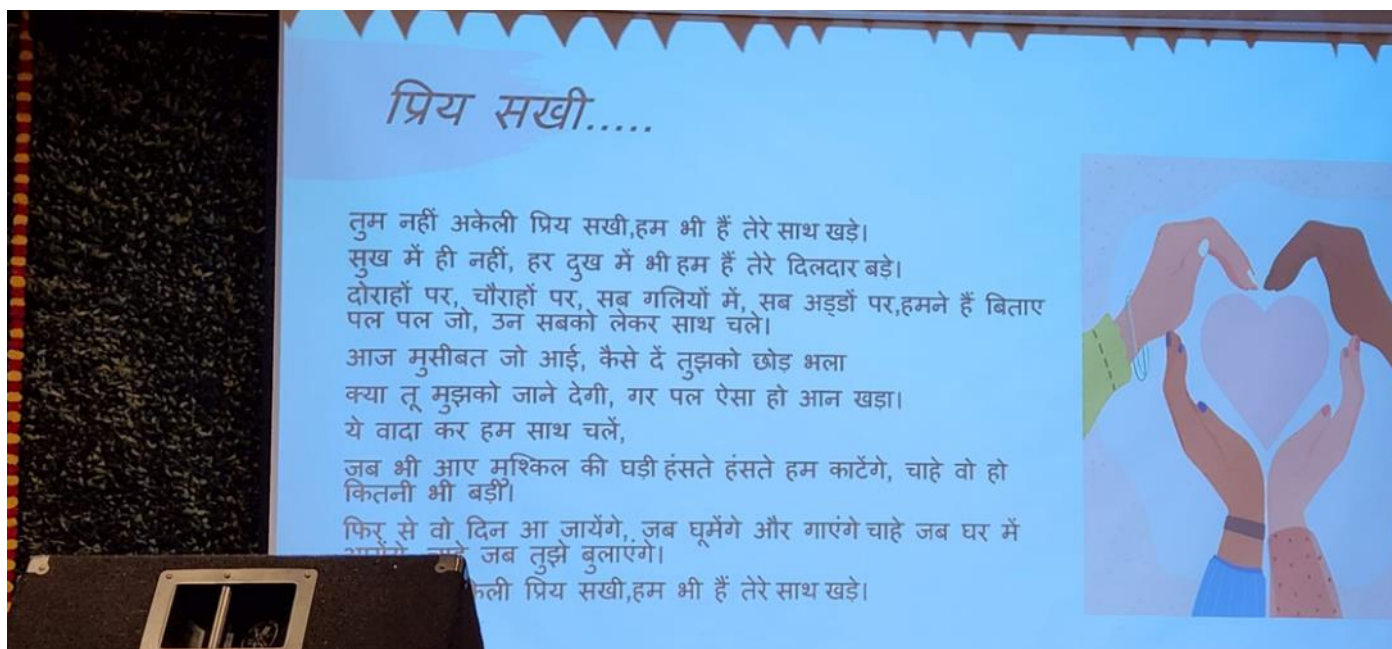 प्रिय सखी.....
तुम नहीं अकेली प्रिय सखी,हम भी हैं तेरे साथ खड़े।
सुख में ही नहीं, हर दुख में भी हम हैं तेरे दिलदार बड़े।
दोराहों पर, चौराहों पर, सब गलियों में, सब अड्डों पर,हमने हैं बिताए
पल पल जो, उन सबको लेकर साथ चले।
आज मुसीबत जो आई, कैसे दें तुझको छोड़ भला
क्या तू मुझको जाने देगी, गर पल ऐसा हो आन खड़ा।
ये वादा कर हम साथ चलें,
जब भी आए मुश्किल की घड़ी हंसते हंसते हम काटेंगे, चाहे वो हो
कितनी भी बड़ी।
फिर से वो दिन आ जायेंगे, जब घूमेंगे और गाएंगे चाहे जब घर में
जब तुझे बुलाएंगे।
प्रिय सखी,हम भी हैं तेरे साथ खड़े।